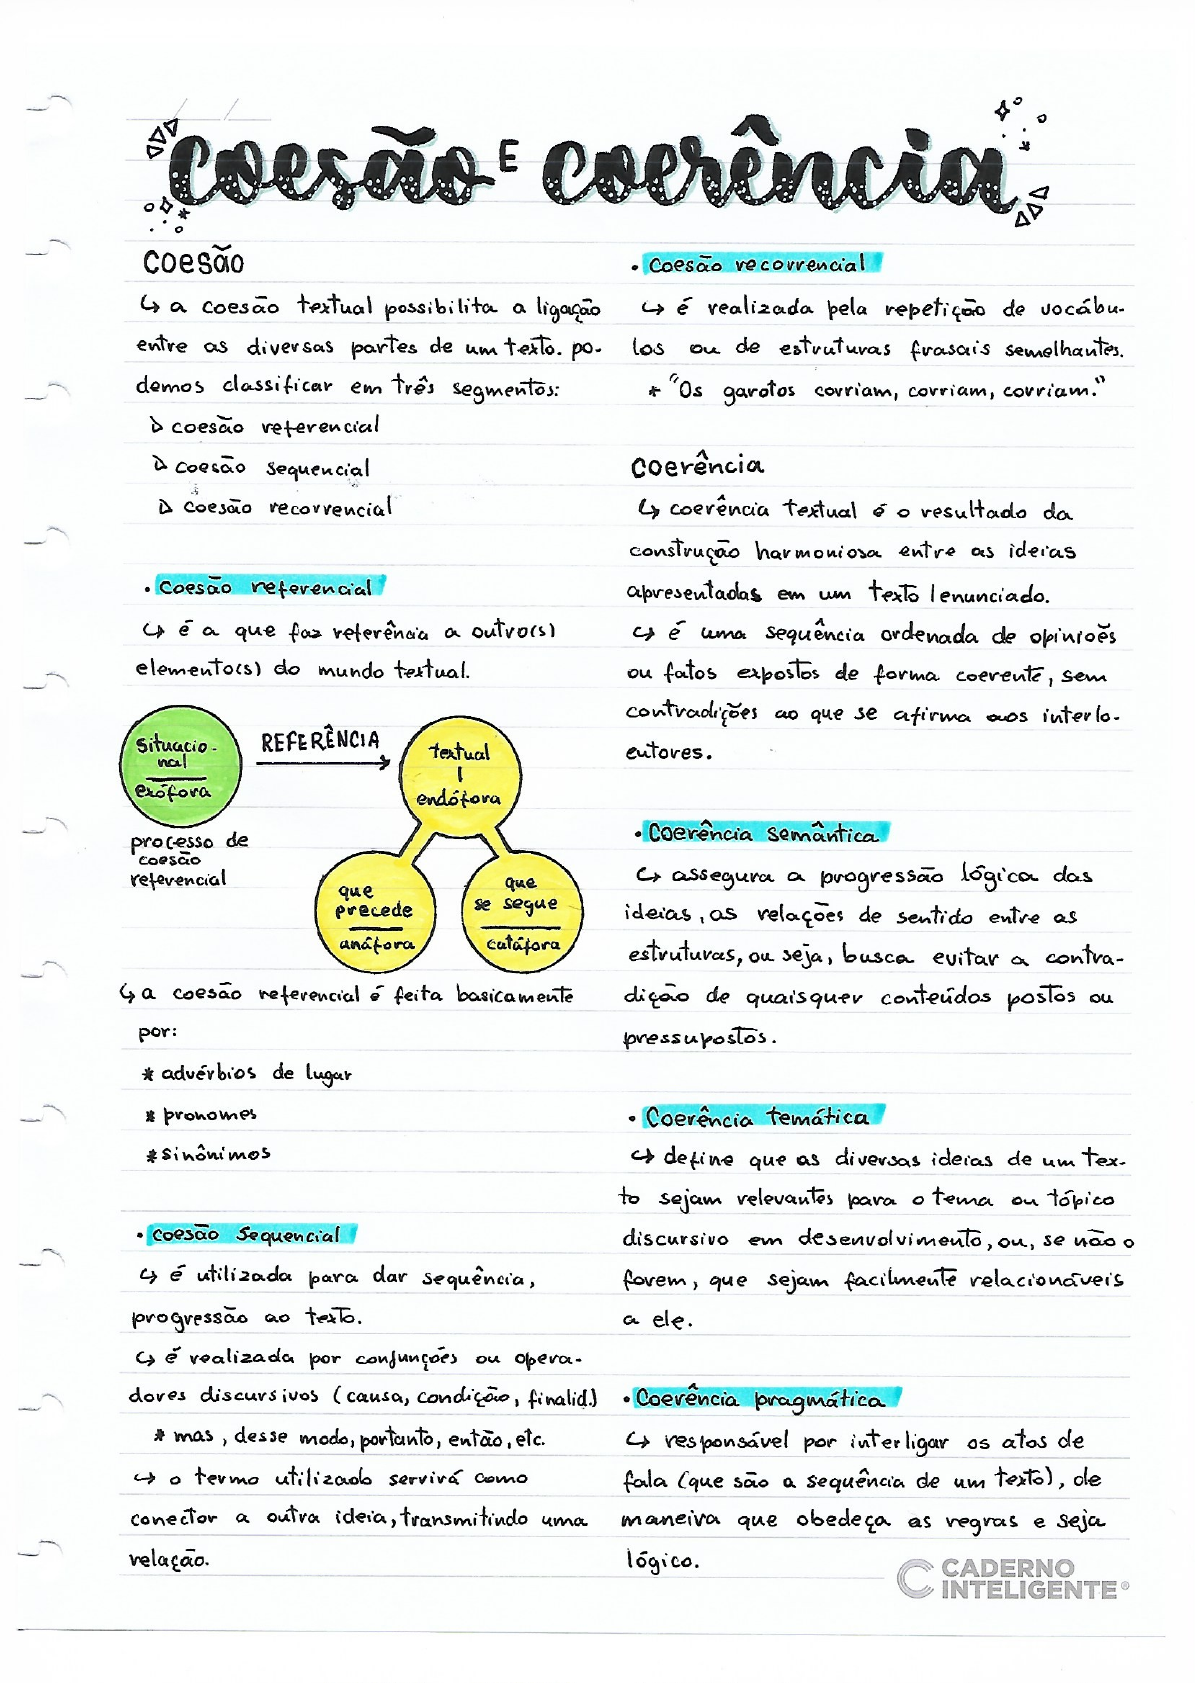 coesão E coerência
coesão
↳ a coesão textual possibilita a ligação
entre as diversas partes de um texto. po-
demos classificar em três segmentos:
▷ coesão referencial
▷ coesão sequencial
▷ coesão recorrencial
• Coesão referencial
↳ é a que faz referência a outro(s)
elemento(s) do mundo textual.
situacio-
nal
exófora
REFERÊNCIA
textual
endófora
processo de
coesão
referencial
que
precede
anáfora
que
se segue
catáfora
↳ a coesão referencial é feita basicamente
por:
* advérbios de lugar
* pronomes
* sinônimos
• coesão sequencial
↳ é utilizada para dar sequência,
progressão ao texto.
↳ é realizada por conjunções ou opera-
dores discursivos (causa, condição, finalid.)
* mas, desse modo, portanto, então, etc.
↳ o termo utilizado servirá como
conector a outra ideia, transmitindo uma
relação.
• Coesão recorrencial
↳ é realizada pela repetição de vocábu-
los ou de estruturas frasais semelhantes.
* "Os garotos corriam, corriam, corriam."
coerência
↳ coerência textual é o resultado da
construção harmoniosa entre as ideias
apresentadas em um texto/enunciado.
↳ é uma sequência ordenada de opiniões
ou fatos expostos de forma coerente, sem
contradições ao que se afirma aos interlo-
cutores.
• Coerência semântica
↳ assegura a progressão lógica das
ideias, as relações de sentido entre as
estruturas, ou seja, busca evitar a contra-
dição de quaisquer conteúdos postos ou
pressupostos.
• Coerência temática
↳ define que as diversas ideias de um tex-
to sejam relevantes para o tema ou tópico
discursivo em desenvolvimento, ou, se não o
forem, que sejam facilmente relacionáveis
a ele.
• Coerência pragmática
↳ responsável por interligar os atos de
fala (que são a sequência de um texto), de
maneira que obedeça as regras e seja
lógico.
CADERNO
INTELIGENTE®